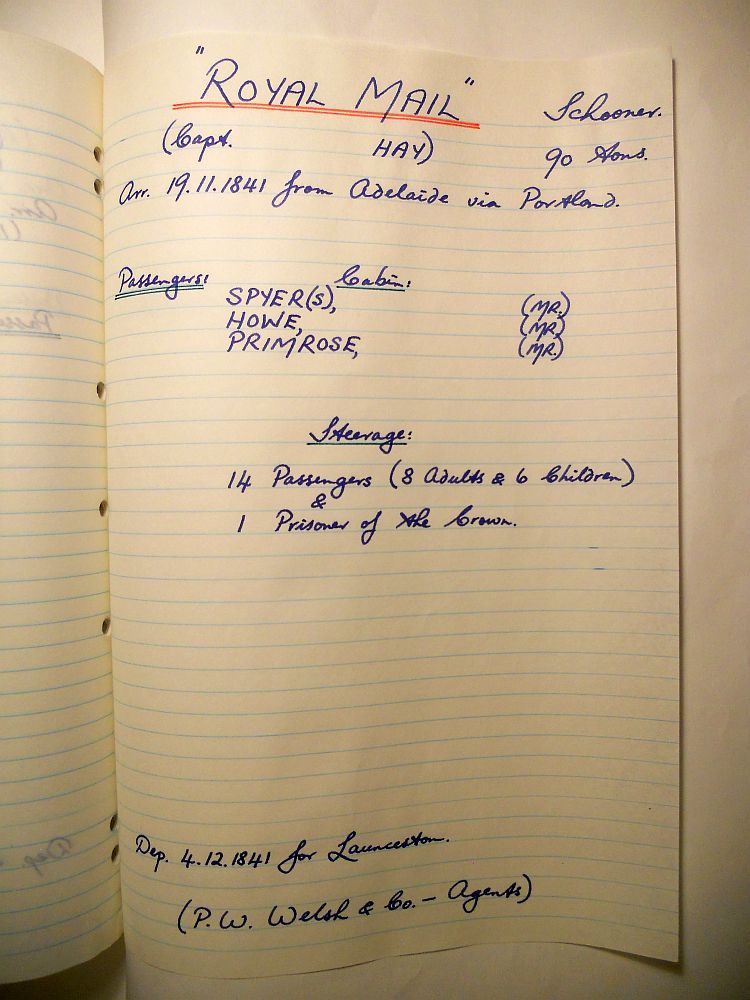 "ROYAL MAIL"
Schooner.
(Capt. HAY)
90 Tons.
Arr. 19.11.1841 from Adelaide via Portland.
Passengers: Cabin:
SPYER(S), (MR.)
HOWE, (MR.)
PRIMROSE, (MR.)
Steerage:
14 Passengers (8 Adults & 6 Children)
&
1 Prisoner of the Crown.
Dep. 4.12.1841 for Launceston.
(P.W. Welsh & Co. - Agents)